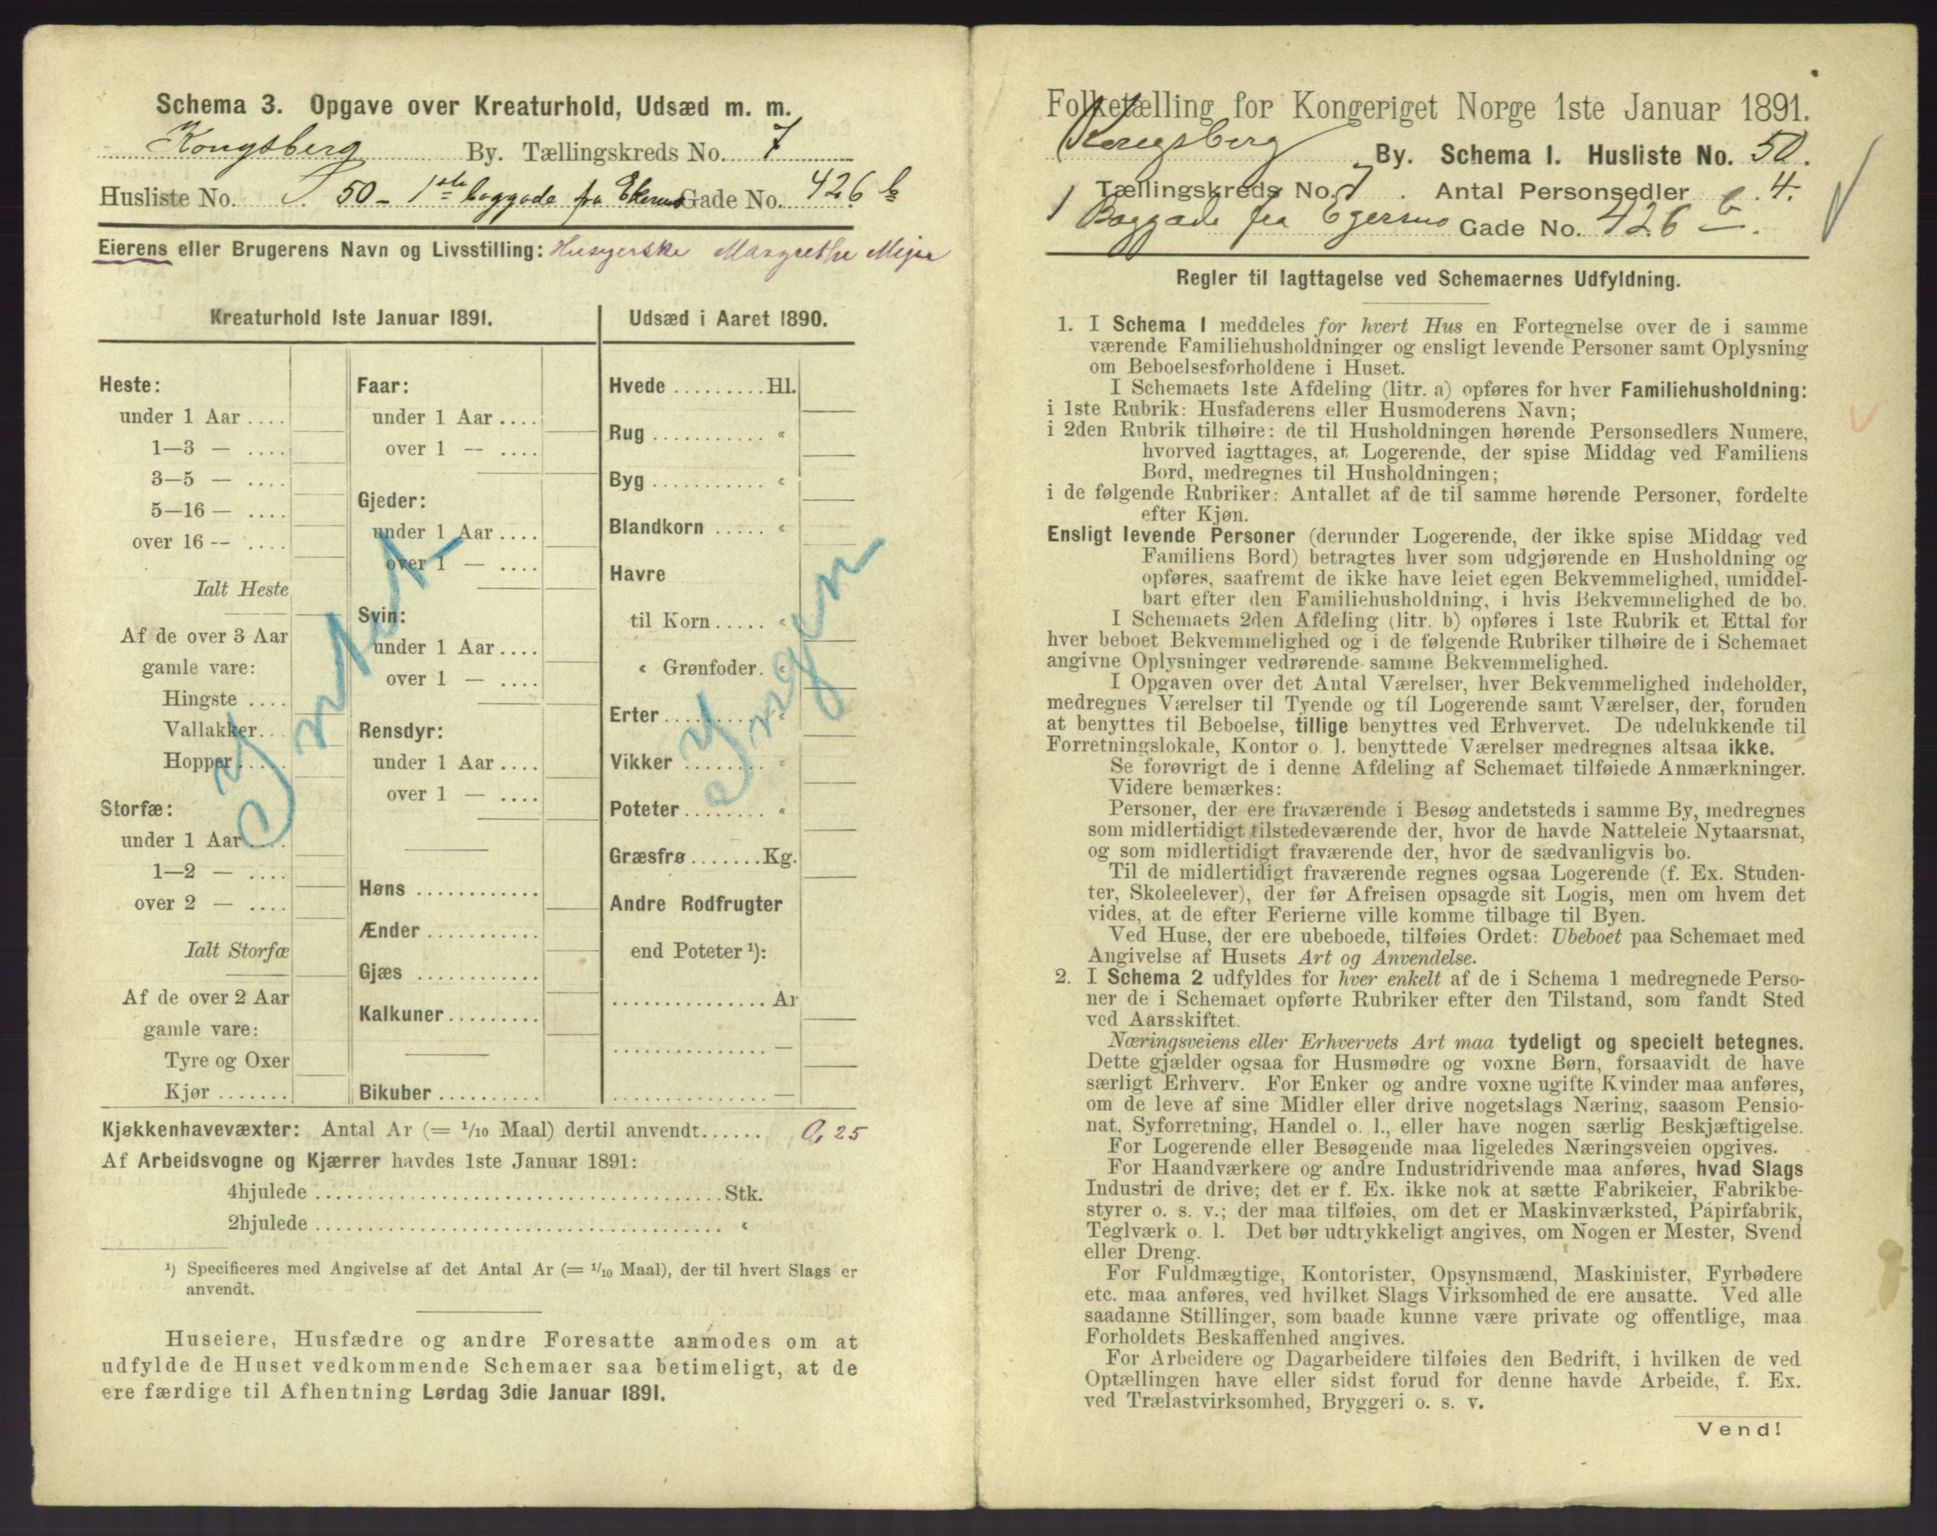 Schema 3. Opgave over Kreaturhold, Udsæd m. m.
Kongsberg By. Tællingskreds No. 7
Husliste No. 50 - 1ste baggade fra Gade No. 426 b
Eierens eller Brugerens Navn og Livsstilling: Husejerske Margrethe Mejer
Kreaturhold 1ste Januar 1891.
Heste:
under 1 Aar ....
1—3 — ....
3—5 — ....
5—16 — ....
over 16 -- ....
Ialt Heste
Af de over 3 Aar
gamle vare:
Hingste ....
Vallakker...
Hopper.....
Storfæ:
under 1 Aar ....
1—2 — ....
over 2 — ....
Ialt Storfæ
Af de over 2 Aar
gamle vare:
Tyre og Oxer
Kjør .......
Faar:
under 1 Aar ....
over 1 — ....
Gjeder:
under 1 Aar ....
over 1 — ....
Svin:
under 1 Aar ....
over 1 — ....
Rensdyr:
under 1 Aar ....
over 1 — ....
Høns ............
Ænder ...........
Gjæs ............
Kalkuner.........
Bikuber..........
Ingen
Udsæd i Aaret 1890.
Hvede .......... Hl.
Rug ........... «
Byg ........... «
Blandkorn ..... «
Havre
til Korn..... «
« Grønfoder. «
Erter.......... «
Vikker ........ «
Poteter........ «
Græsfrø.......Kg.
Andre Rodfrugter
end Poteter ¹):
............... Ar
............... —
............... —
Ingen
Kjøkkenhavevæxter: Antal Ar (= 1/10 Maal) dertil anvendt...... 0,25
Af Arbeidsvogne og Kjærrer havdes 1ste Januar 1891:
4hjulede ........................................Stk.
2hjulede ........................................ «
¹) Specificeres med Angivelse af det Antal Ar (= 1/10 Maal), der til hvert Slags er
anvendt.
Huseiere, Husfædre og andre Foresatte anmodes om at
udfylde de Huset vedkommende Schemaer saa betimeligt, at de
ere færdige til Afhentning Lørdag 3die Januar 1891.
Folketælling for Kongeriget Norge 1ste Januar 1891.
Kongsberg By. Schema I. Husliste No. 50.
Tællingskreds No. 7. Antal Personsedler 4.
1 Baggade fra Egersmo Gade No. 426 b.
Regler til Iagttagelse ved Schemaernes Udfyldning.
1. I Schema I meddeles for hvert Hus en Fortegnelse over de i samme
værende Familiehusholdninger og ensligt levende Personer samt Oplysning
om Beboelsesforholdene i Huset.
I Schemaets 1ste Afdeling (litr. a) opføres for hver Familiehusholdning:
i 1ste Rubrik: Husfaderens eller Husmoderens Navn;
i 2den Rubrik tilhøire: de til Husholdningen hørende Personsedlers Numere,
hvorved iagttages, at Logerende, der spise Middag ved Familiens
Bord, medregnes til Husholdningen;
i de følgende Rubriker: Antallet af de til samme hørende Personer, fordelte
efter Kjøn.
Ensligt levende Personer (derunder Logerende, der ikke spise Middag ved
Familiens Bord) betragtes hver som udgjørende en Husholdning og
opføres, saafremt de ikke have leiet egen Bekvemmelighed, umiddel-
bart efter den Familiehusholdning, i hvis Bekvemmelighed de bo.
I Schemaets 2den Afdeling (litr. b) opføres i 1ste Rubrik et Ettal for
hver beboet Bekvemmelighed og i de følgende Rubriker tilhøire de i Schemaet
angivne Oplysninger vedrørende samme Bekvemmelighed.
I Opgaven over det Antal Værelser, hver Bekvemmelighed indeholder,
medregnes Værelser til Tyende og til Logerende samt Værelser, der, foruden
at benyttes til Beboelse, tillige benyttes ved Erhvervet. De udelukkende til
Forretningslokale, Kontor o. l. benyttede Værelser medregnes altsaa ikke.
Se forøvrigt de i denne Afdeling af Schemaet tilføiede Anmærkninger.
Videre bemærkes:
Personer, der ere fraværende i Besøg andetsteds i samme By, medregnes
som midlertidigt tilstedeværende der, hvor de havde Natteleie Nytaarsnat,
og som midlertidigt fraværende der, hvor de sædvanligvis bo.
Til de midlertidigt fraværende regnes ogsaa Logerende (f. Ex. Studen-
ter, Skoleelever), der før Afreisen opsagde sit Logis, men om hvem det
vides, at de efter Ferierne ville komme tilbage til Byen.
Ved Huse, der ere ubeboede, tilføies Ordet: Ubeboet paa Schemaet med
Angivelse af Husets Art og Anvendelse.
2. I Schema 2 udfyldes for hver enkelt af de i Schema 1 medregnede Perso-
ner de i Schemaet opførte Rubriker efter den Tilstand, som fandt Sted
ved Aarsskiftet.
Næringsveiens eller Erhvervets Art maa tydeligt og specielt betegnes.
Dette gjælder ogsaa for Husmødre og voxne Børn, forsaavidt de have
særligt Erhverv. For Enker og andre voxne ugifte Kvinder maa anføres,
om de leve af sine Midler eller drive nogetslags Næring, saasom Pensio-
nat, Syforretning, Handel o. l., eller have nogen særlig Beskjæftigelse.
For Logerende eller Besøgende maa ligeledes Næringsveien opgives.
For Haandværkere og andre Industridrivende maa anføres, hvad Slags
Industri de drive; det er f. Ex. ikke nok at sætte Fabrikeier, Fabrikbe-
styrer o. s. v.; der maa tilføies, om det er Maskinværksted, Papirfabrik,
Teglværk o. l. Det bør udtrykkeligt angives, om Nogen er Mester, Svend
eller Dreng.
For Fuldmægtige, Kontorister, Opsynsmænd, Maskinister, Fyrbødere
etc. maa anføres, ved hvilket Slags Virksomhed de ere ansatte. Ved alle
saadanne Stillinger, som baade kunne være private og offentlige, maa
Forholdets Beskaffenhed angives.
For Arbeidere og Dagarbeidere tilføies den Bedrift, i hvilken de ved
Optællingen have eller sidst forud for denne havde Arbeide, f. Ex.
ved Trælastvirksomhed, Bryggeri o. s. v.
Vend!